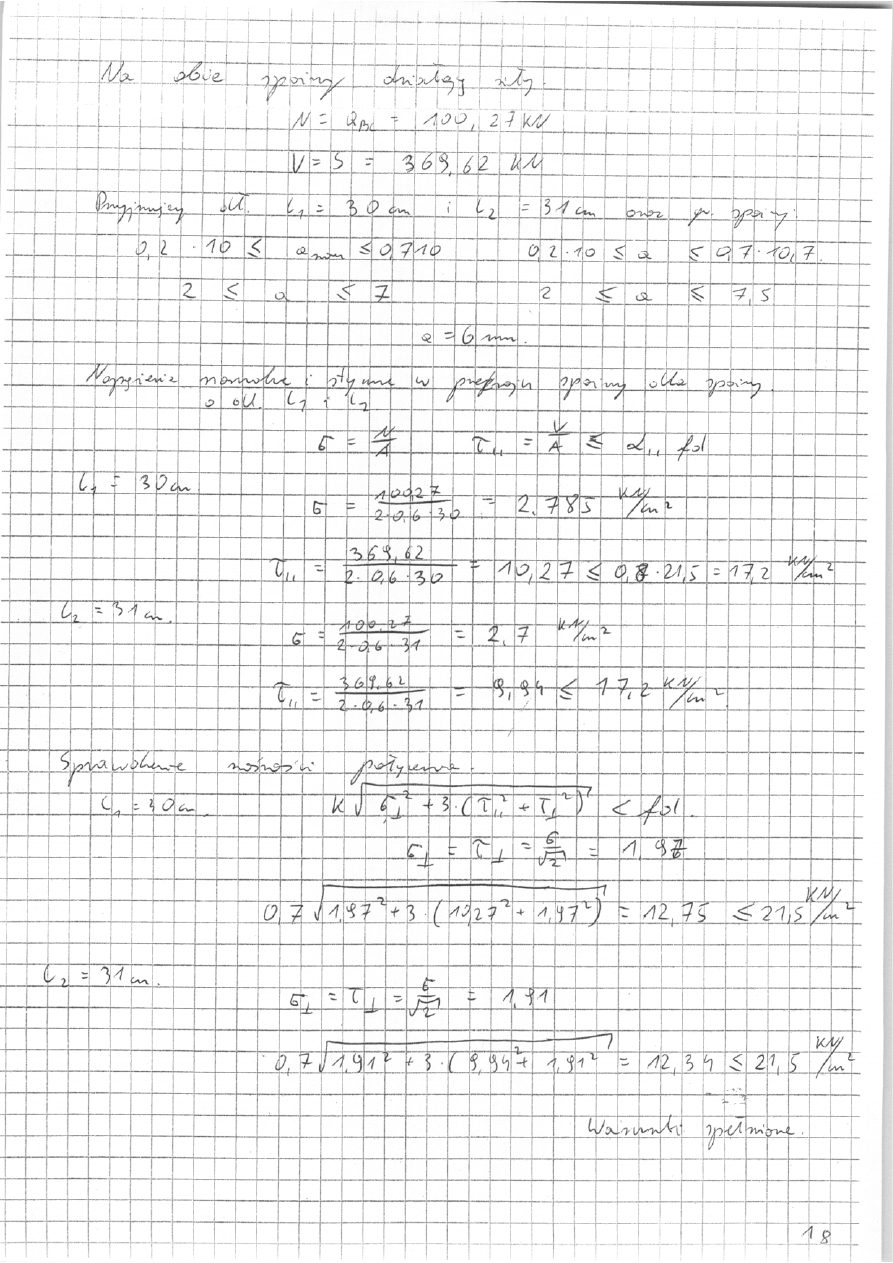 Na obie spoiny działają siły.
N = Q_BC = 100,27 KN
V = S = 369,62 KN
Przyjmujemy dł. l₁ = 30 cm i l₂ = 31 cm oraz gr. spoiny:
0,2 · 10 ≤ a nom ≤ 0,7 10     0,2 · 10 ≤ a ≤ 0,7 · 10,7.
2 ≤ a ≤ 7     2 ≤ a ≤ 7,5
a = 6 mm.
Naprężenia normalne i styczne w przekroju spoiny dla spoiny
o dł. l₁ i l₂
σ = N/A     τ₁₁ = V/A ≤ α₁₁ fd
l₁ = 30 cm.
σ = 100,27/(2·0,6·30) = 2,785 KN/cm²
τ₁₁ = 369,62/(2·0,6·30) = 10,27 ≤ 0,8·21,5 = 17,2 KN/cm²
l₂ = 31 cm.
σ = 100,27/(2·0,6·31) = 2,7 KN/cm²
τ₁₁ = 369,62/(2·0,6·31) = 9,94 ≤ 17,2 KN/cm²
Sprawdzenie nośności połączenia.
l₁ = 30 cm.     K√(σ⊥² + 3·(τ₁₁² + τ⊥²)) < fd.
σ⊥ = τ⊥ = σ/√2 = 1,97
0,7√(1,97² + 3·(10,27² + 1,97²)) = 12,75 ≤ 21,5 KN/cm²
l₂ = 31 cm.
σ⊥ = τ⊥ = σ/√2 = 1,91
0,7√(1,91² + 3·(9,94² + 1,91²)) = 12,34 ≤ 21,5 KN/cm²
Warunki spełnione.
18